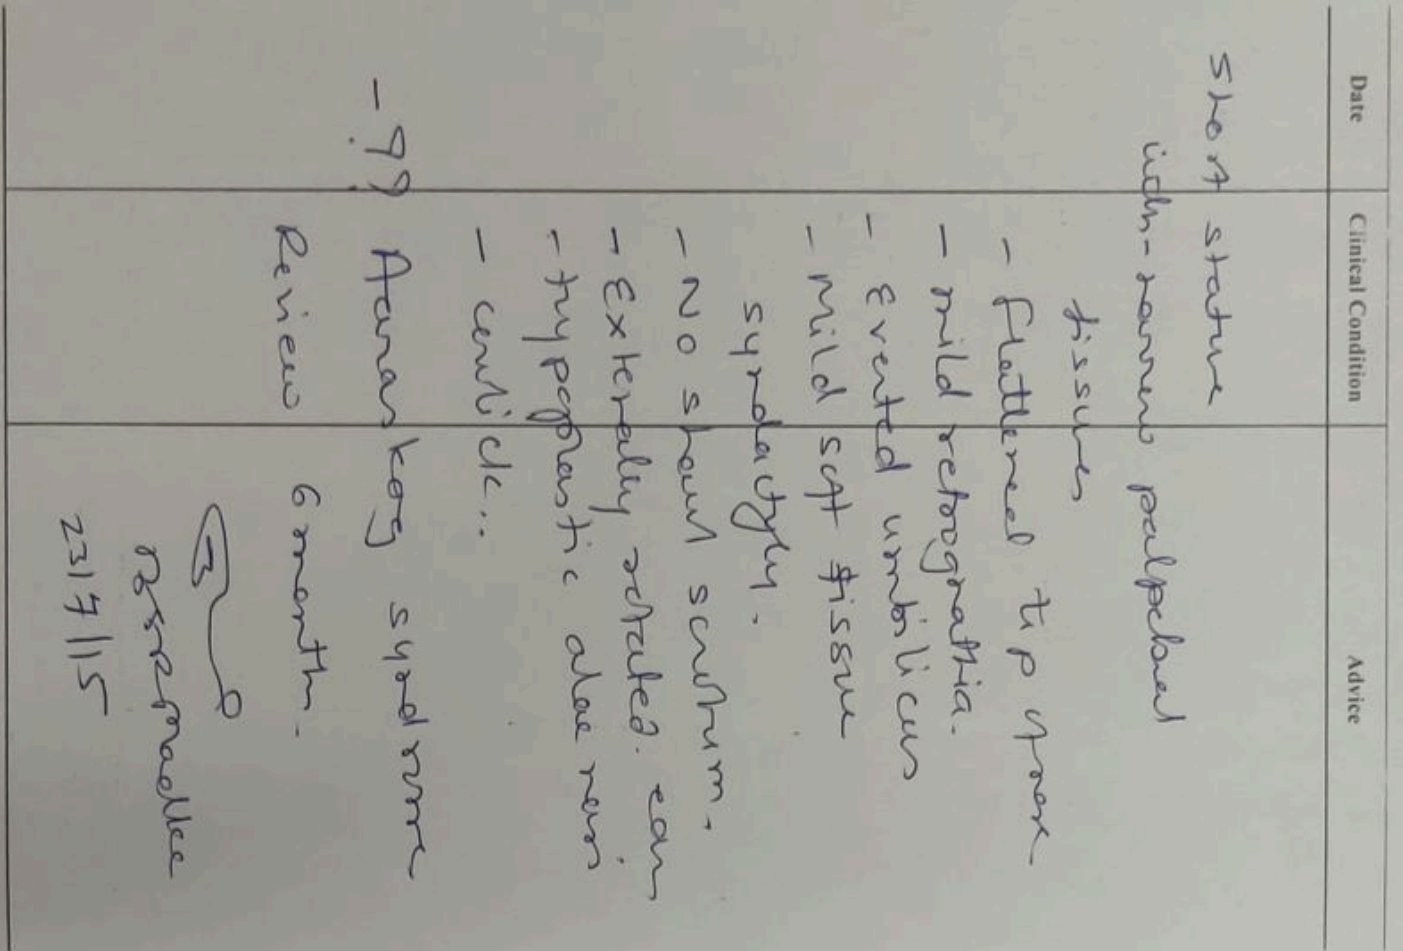 Date Clinical Condition Advice
Short stature
with - narrow palpebral
fissures
- flattened tip of nose
- mild retrognathia.
- Everted umbilicus
- Mild soft tissue
syndactyly.
- No shawl scrotum.
- Externally rotated. ear
- Hypoplastic alae nasi
- cowlick..
- ?? Aaras kog syndrome
Review 6 month.
23/7/15